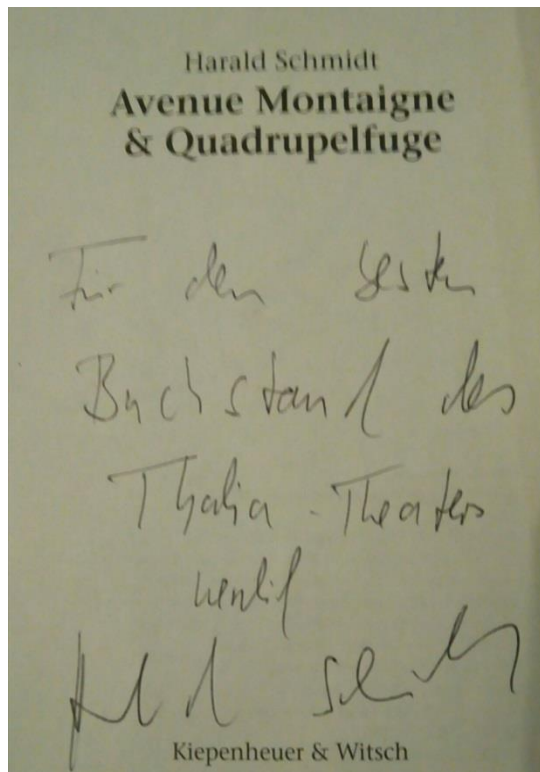 Harald Schmidt
Avenue Montaigne
& Quadrupelfuge
Für den besten
Buchstand des
Thalia-Theaters
herzlich
Harald Schmidt
Kiepenheuer & Witsch